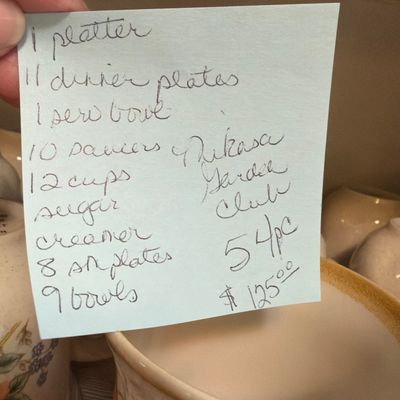 1 platter
11 dinner plates
1 serv bowl
10 saucers
12 cups
sugar
creamer
8 sm plates
9 bowls
Mikasa
Garden
Club
54pc
$125.00